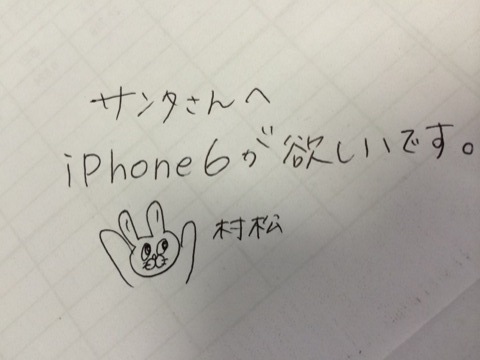 サンタさんへ
iPhone6が欲しいです。
村松